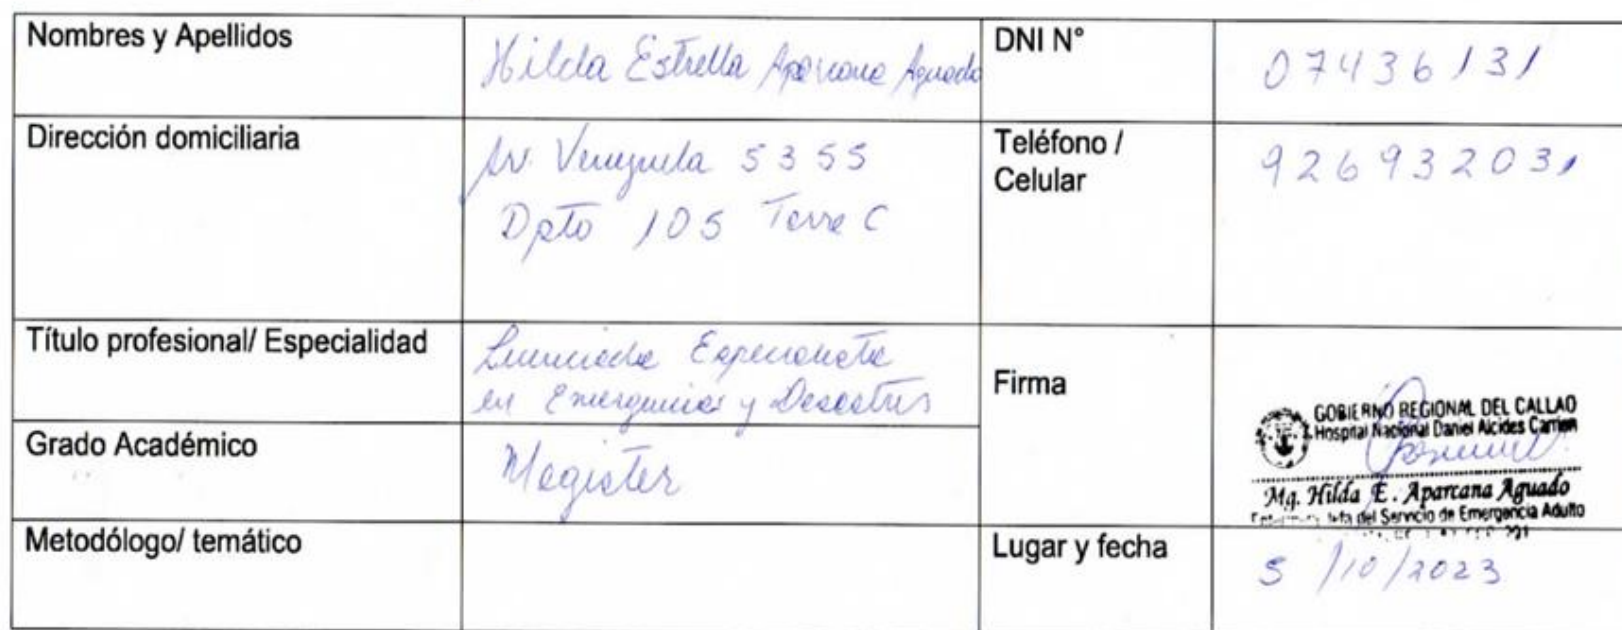 Nombres y Apellidos
Hilda Estrella Aparcana Aguado
DNI N°
07436131
Dirección domiciliaria
Av. Venezuela 5355
Dpto 105 Torre C
Teléfono /
Celular
926932031
Título profesional/ Especialidad
Licenciada Especialista
en Emergencias y Desastres
Firma
GOBIERNO REGIONAL DEL CALLAO
Hospital Nacional Daniel Alcides Carrion
Mg. Hilda E. Aparcana Aguado
Jefa del Servicio de Emergencia Adulto
Grado Académico
Magister
Metodólogo/ temático
Lugar y fecha
5 /10/2023